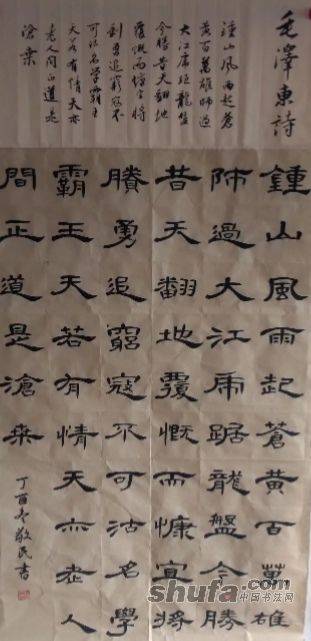 毛澤東詩
鍾山風雨起蒼
黄百萬雄師過
大江虎踞龍盤
今勝昔天翻地
覆慨而慷宜將
剩勇追窮寇不
可沽名學霸王
天若有情天亦
老人间正道是
滄桑
鍾山風雨起蒼黄百萬雄
師過大江虎踞龍盤今勝
昔天翻地覆慨而慷宜將
賸勇追窮寇不可沽名學
霸王天若有情天亦老人
間正道是滄桑
丁酉冬敬民書
shufa.com
中国书法网